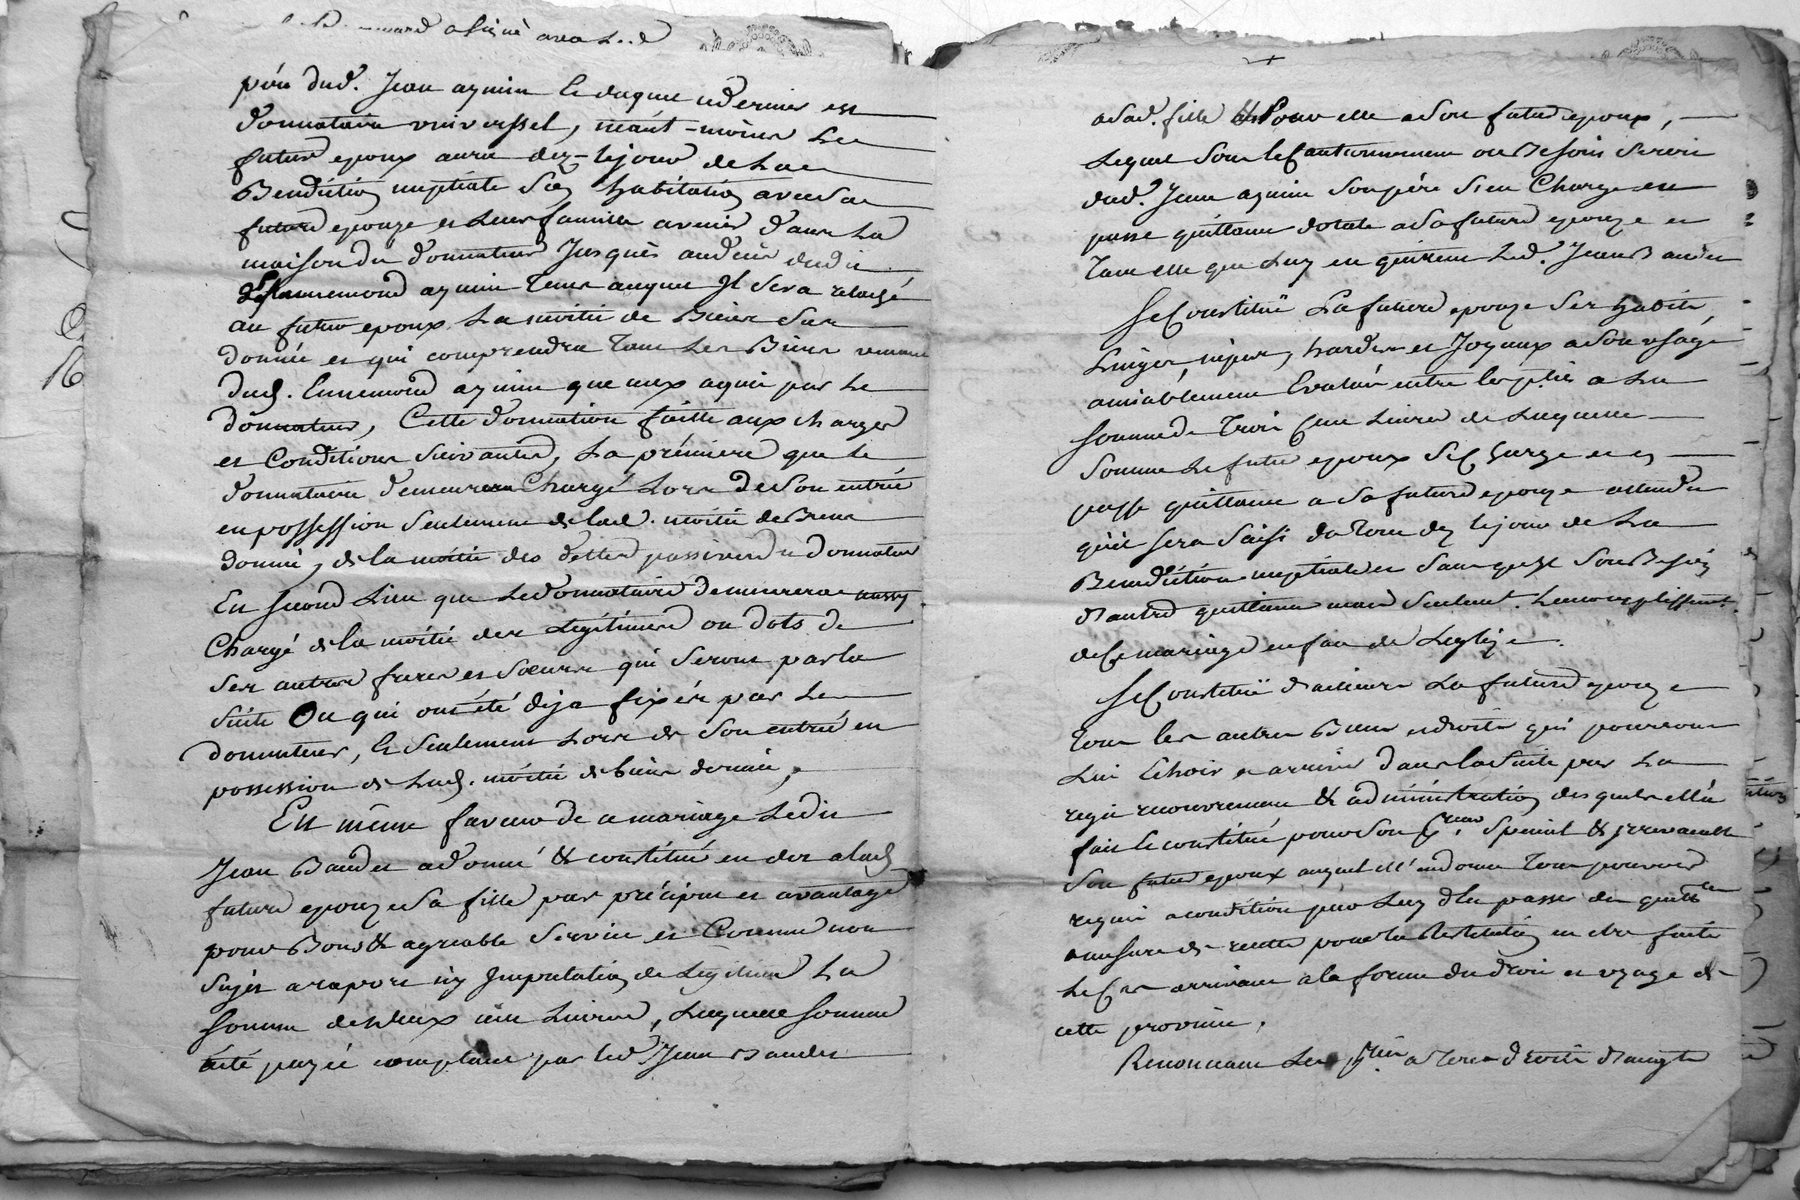 père dud. Jean aymin le duquel cedernier est
donnataire universsel, neant-moins Le
futur epoux aura dez-lejour de La
Benediction nuptiale son habitation avec sa
future epouze et Leur famille avenir dans La
maison du donnateur Jusques audeces dudit
Ennemond aymin tems auquel Il sera relaché
au futur epoux La moitié de Biens sus
donnée et qui comprendra tous Les Biens venant
dud. Ennemond aymin que ceux aquis par Le
donnateur, Cette donnation faitte aux charges
et Conditions suivantes, La prémiere que le
donnataire demeurera Chargé Lors de son entrée
en possession seulement de lad. moitié de Biens
donnée, de la moitié des dettes passives du donnateur
En second Lieu que Ledonnataire demeurera aussy
Chargé de la moitié des Legitimes ou dots de
ses autres freres et sœurs qui seront par la
suite Ou qui ont été deja fixées par Le
donnateur, & seulement Lors de son entrée en
possession de Lad. moitié de biens donnée,
En même faveur de ce mariage Ledit
Jean Baudet a donné & constitué en dot a lad.
future epouze sa fille par précipu et avantage
pour Bons & agreable service et Comme non
sujet a raport ny Imputation de Legitime La
somme de deux cent Livres, Laquelle somme
a été payée comptant par led. Jean Baudet
asad. fille & pour elle a son futur epoux,
Lequel sous le Cautionnement ou Besoin seroit
dud. Jean aymin son père s'en Charge et en
passe quittance dotale a sa future epouze et
tant elle que Luy en quittent Led. Jean Baudet
Se Constituë La future epouze ses habits,
Linges, nipes, hardes et Joyaux a son usage
amiablement Evalués entre les pties a La
somme de trois Cent Livres de Laquelle
somme Le futur epoux se Charge et en
passe quittance a sa future epouze attendu
qu'il sera saisi du tout dez lejour de La
Benediction nuptiale et sans qu'il soit Besoin
d'autre quittance mais seulemt. Lacomplissemt.
de Ce mariage en face de Leglize.
Se Constituë d'ailleurs La future epouze
tous les autres Biens et droits qui pourront
Lui Echoir et arriver dans la suite par La
regie recouvrement & administration des quels ella
fait & constitué pour son Special & irrevocable
son futur epoux auquel ell'endonne tous pouvoirs
requis a condition pour Luy den passer de quittces
a mesure de recette pour la Restitution en etre faite
Le Cas arrivant a la forme du droit et uzage de
cette province,
Renonceant Les pties a tous droits d'augt